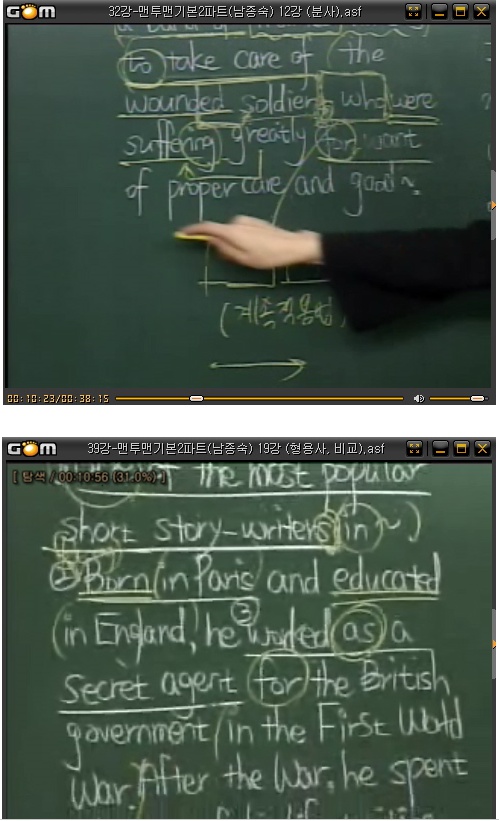 GOM 32강-맨투맨기본2파트(남종숙) 12강 (분사),asf
to take care of the
wounded soldiers, who were
suffering greatly for want
of proper care and good~.
(계속적용법)
00:10:23/00:38:15
GOM 39강-맨투맨기본2파트(남종숙) 19강 (형용사, 비교),asf
[ 탐색 / 00:10:56 (31.0%) ]
the most popular
short story-writers in ~)
② Born in Paris and educated
(in England, he ③ worked as a
secret agent for the British
government (in the First World
War. After the War, he spent